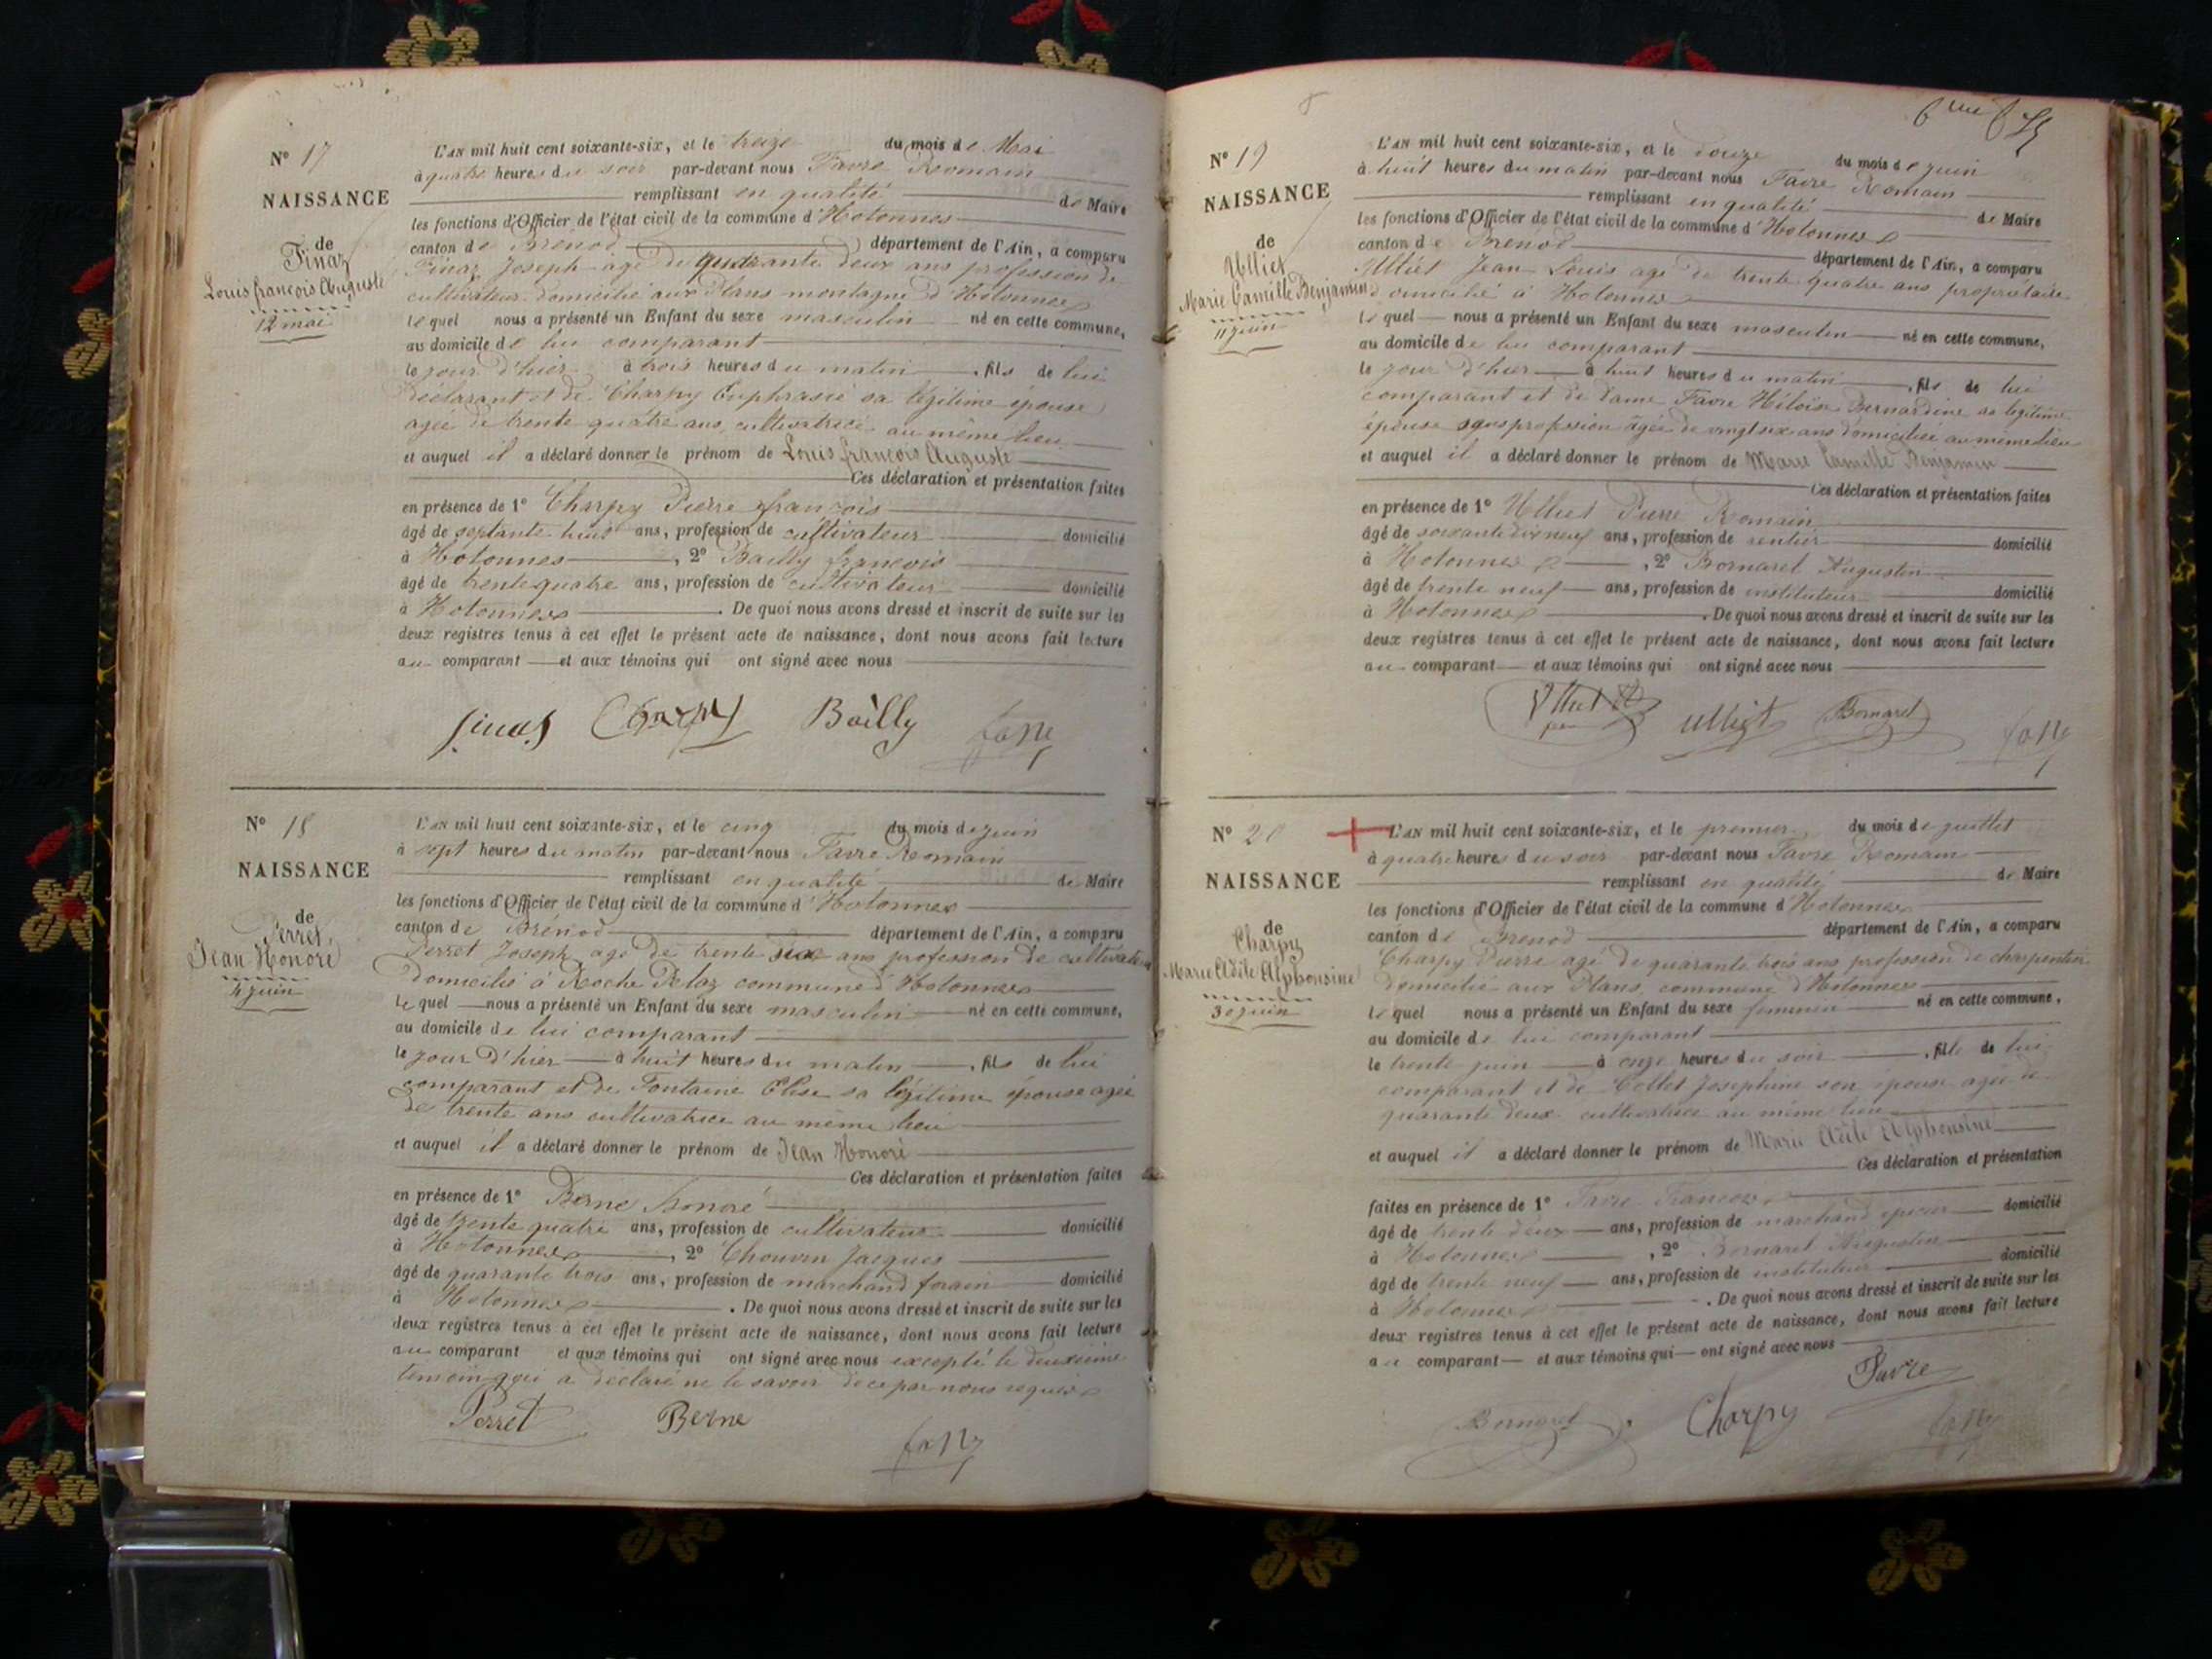 N° 17
NAISSANCE
de
Finaz
Louis françois Auguste
12 mai
L'AN mil huit cent soixante-six, et le treize du mois de Mai
à quatre heures du soir par-devant nous Favre Romain
remplissant en qualité de Maire
les fonctions d'Officier de l'état civil de la commune d'Hotonnes
canton de Brénod département de l'Ain, a comparu
Finaz Joseph agé de quarante deux ans profession de
cultivateur domicilié aux Plans montagne d'Hotonnes
lequel nous a présenté un Enfant du sexe masculin né en cette commune,
au domicile de lui comparant
le jour d'hier à trois heures du matin, fils de lui
déclarant et de Charpy Euphrasie sa légitime épouse
agée de trente quatre ans, cultivatrice au même lieu
et auquel il a déclaré donner le prénom de Louis françois Auguste
Ces déclaration et présentation faites
en présence de 1° Charpy Pierre françois
âgé de septante huit ans, profession de cultivateur domicilié
à Hotonnes, 2° Bailly françois
âgé de trente quatre ans, profession de cultivateur domicilié
à Hotonnes. De quoi nous avons dressé et inscrit de suite sur les
deux registres tenus à cet effet le présent acte de naissance, dont nous avons fait lecture
au comparant et aux témoins qui ont signé avec nous
finaz Charpy Bailly favre
N° 18
NAISSANCE
de
Perret
Jean Honoré
4 juin
L'AN mil huit cent soixante-six, et le cinq du mois de juin
à sept heures du matin par-devant nous Favre Romain
remplissant en qualité de Maire
les fonctions d'Officier de l'état civil de la commune d'Hotonnes
canton de Brénod département de l'Ain, a comparu
Perret Joseph agé de trente six ans profession de cultivateur
domicilié à Roche commune d'Hotonnes
lequel nous a présenté un Enfant du sexe masculin né en cette commune,
au domicile de lui comparant
le jour d'hier à huit heures du matin, fils de lui
comparant et de Fontaine Elise sa légitime épouse agée
de trente ans cultivatrice au même lieu
et auquel il a déclaré donner le prénom de Jean Honoré
Ces déclaration et présentation faites
en présence de 1° Berne honoré
âgé de trente quatre ans, profession de cultivateur domicilié
à Hotonnes, 2° Jacques
âgé de quarante trois ans, profession de marchand forain domicilié
à Hotonnes. De quoi nous avons dressé et inscrit de suite sur les
deux registres tenus à cet effet le présent acte de naissance, dont nous avons fait lecture
au comparant et aux témoins qui ont signé avec nous excepté le deuxième
témoin qui a déclaré ne le savoir de ce par nous requis
Perret Berne favre
N° 19
NAISSANCE
de
Ulliet
Marie Camille Benjamin
11 juin
L'AN mil huit cent soixante-six, et le douze du mois de juin
à huit heures du matin par-devant nous Favre Romain
remplissant en qualité de Maire
les fonctions d'Officier de l'état civil de la commune d'Hotonnes
canton de Brénod département de l'Ain, a comparu
Ulliet Jean Louis agé de trente quatre ans propriétaire
domicilié à Hotonnes
lequel nous a présenté un Enfant du sexe masculin né en cette commune,
au domicile de lui comparant
le jour d'hier à huit heures du matin, fils de lui
comparant et de Dame Favre Héloïse Bernardine sa légitime
épouse sans profession âgée de vingt six ans domiciliée au même lieu
et auquel il a déclaré donner le prénom de Marie Camille Benjamin
Ces déclaration et présentation faites
en présence de 1° Ulliet Pierre Romain
âgé de soixante dix neuf ans, profession de rentier domicilié
à Hotonnes, 2° Bornaret Augustin
âgé de trente neuf ans, profession de instituteur domicilié
à Hotonnes. De quoi nous avons dressé et inscrit de suite sur les
deux registres tenus à cet effet le présent acte de naissance, dont nous avons fait lecture
au comparant et aux témoins qui ont signé avec nous
Ulliet ulliet Bornaret favre
N° 20
NAISSANCE
de
Charpy
Marie Adèle Alphonsine
30 juin
L'AN mil huit cent soixante-six, et le premier du mois de juillet
à quatre heures du soir par-devant nous Favre Romain
remplissant en qualité de Maire
les fonctions d'Officier de l'état civil de la commune d'Hotonnes
canton de Brenod département de l'Ain, a comparu
Charpy Pierre agé de quarante trois ans profession de charpentier
domicilié aux Plans, commune d'Hotonnes
lequel nous a présenté un Enfant du sexe féminin né en cette commune,
au domicile de lui comparant
le trente juin à onze heures du soir, fille de lui
comparant et de Collet Josephine son épouse agée de
quarante deux cultivatrice au même lieu
et auquel il a déclaré donner le prénom de Marie Adèle Alphonsine
Ces déclaration et présentation
faites en présence de 1° Favre François
âgé de trente deux ans, profession de marchand épicier domicilié
à Hotonnes, 2° Bornaret Augustin
âgé de trente neuf ans, profession de instituteur domicilié
à Hotonnes. De quoi nous avons dressé et inscrit de suite sur les
deux registres tenus à cet effet le présent acte de naissance, dont nous avons fait lecture
au comparant et aux témoins qui ont signé avec nous
Favre
Bornaret Charpy favre